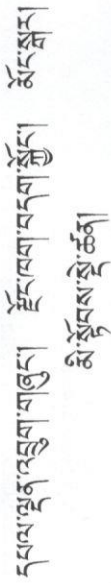 དཔལ་ལྡན་འབྲུག་གཞུང་། རྫོང་ཁག་བདག་སྐྱོང་། མོང་སྒར།
མི་སྟོབས་སྡེ་ཚན།